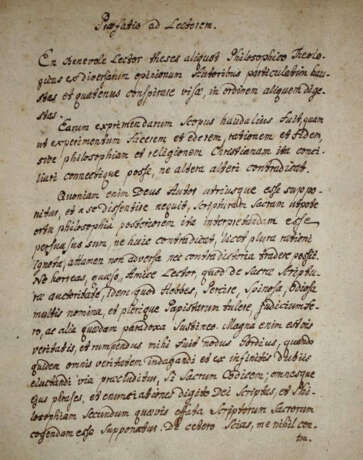 Præfatio ad Lectorem.
En Benevole Lector theses aliquot Philosophico Theolo-
gicas ex diversarum opinionum Autoribus particulatim hau-
stas et quatenus conspirare visæ, in ordinem aliquem dige-
stas.
Earum exprimendarum Scopus haud alius fuit, quam
ut experimentum facerem et ederem, rationem et fidem,
sive philosophiam et religionem Christianam ita conci-
liari connectique posse, ne altera alteri contradicat.
Quoniam enim Deus Autor utriusque esse suppo-
nitur, et a se dissentire nequit, Scripturam Sacram utpote
ortu philosophia posteriorem ita interpretandam esse
persuasus sum, ne huic contradicat, licet plura rationi
ignota, attamen non adversa nec contradictoria tradere possit.
Ne horreas, quæso, Amice Lector, quod de Sacræ Scriptu-
ræ auctoritate, idem quod Hobbes, Pereire, Spinosa, odiosa
multis nomina, et plerique Papistarum tulere, judicium fe-
ro, ac alia quædam paradoxa sustineo. Magna enim est vis
veritatis, et rumpendus mihi fuit nodus Gordius, quando
quidem omnis veritatem indagandi et ex infinitis dubiis
eluctandi via præcluditur, si Sacrum Codicem, omnesque
ejus phrases, et enunciationes digito Dei scriptas, et Phi-
losophiam secundum quævis effata Scriptorum Sacrorum
cogendam esse supponatur. De cetero Scias, me nihil con-
tra